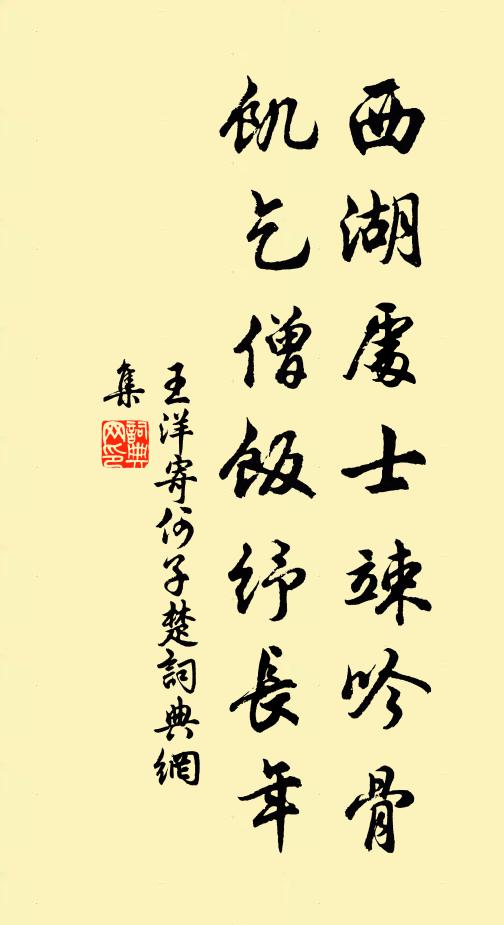 西湖處士竦吟骨
飢乞僧飯紓長年
王洋寄何子楚詞典網
集
詞典
网印